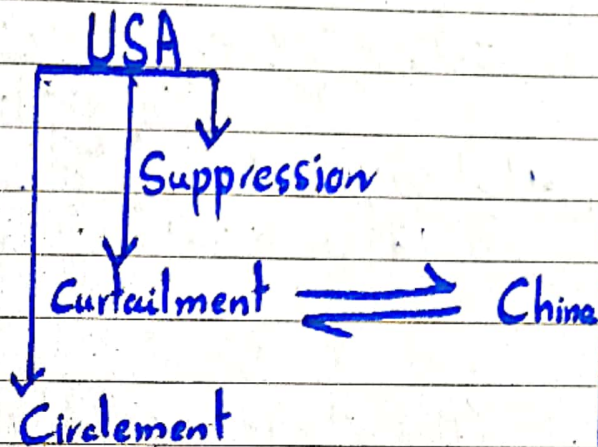 USA
Suppression
Curtailment China
Circlement